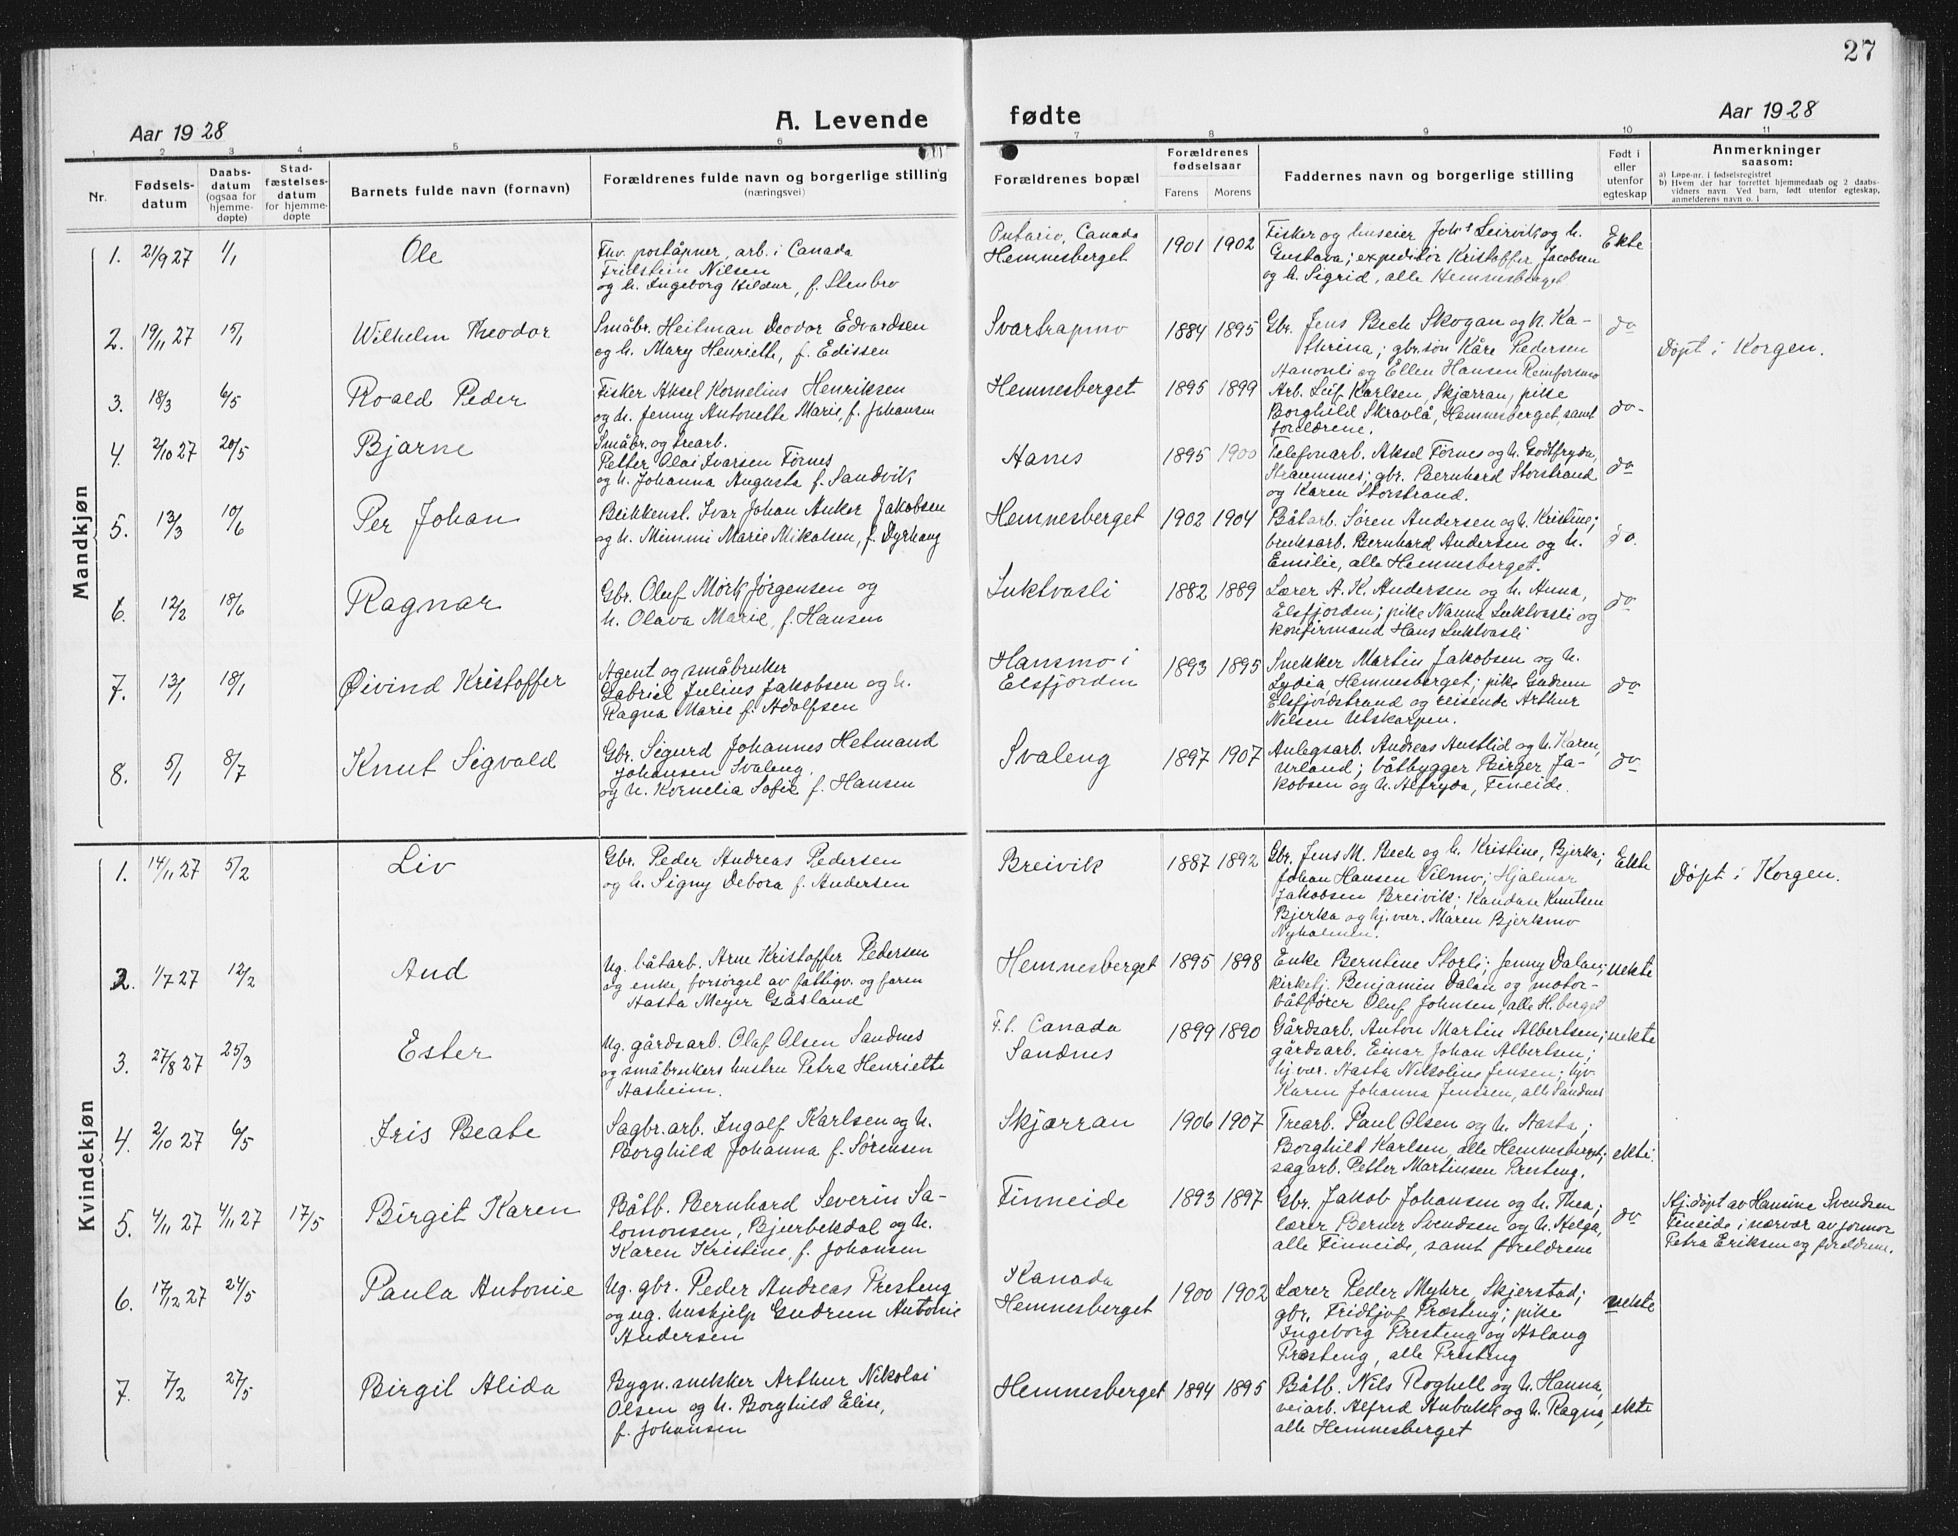 27
Aar 1928
A. Levende
fødte
Aar 1928
1 2 3 4 5 6 7 8 9 10 11
Nr.
Fødsels-
datum
Daabs-
datum
(ogsaa for
hjemme-
døpte)
Stad-
fæstelses-
datum
for hjemme-
døpte
Barnets fulde navn (fornavn)
Forældrenes fulde navn og borgerlige stilling
(næringsvei)
Forældrenes bopæl
Forældrenes
fødselsaar
Farens Morens
Faddernes navn og borgerlige stilling
Født i
eller
utenfor
egteskap
Anmerkninger
saasom:
a) Løpe-nr. i fødselsregistret
b) Hvem der har forrettet hjemmedaab og 2 daabs-
vidners navn. Ved barn, født utenfor egteskap,
anmelderens navn o. l
Mandkjøn
1. 21/9 27 1/1 Ole
Fhv. poståpner, arb. i Canada
Nilsen
og h. Ingeborg Hildur, f. Stenbro
Ontario, Canada
Hemnesberget
1901 1902
Fisker og huseier Johs Leirvik og h.
Gustava; expeditør Kristoffer Jacobsen
og h. Sigrid, alle Hemnesberget
Ekte
2. 19/11 27 15/1 Wilhelm Theodor
Småbr. Heitman Deodor Edvardsen
og h. Mary Henriette, f. Edissen
Svartrapmo
1884 1895
Gbr. Jens Bech Skogan og h. Ka-
thrina; gbr.søn Kåre Pedersen
og Ellen Hansen Remforsmo
do
Døpt i Korgen.
3. 18/3 6/5 Roald Peder
Fisker Aksel Kornelius Henriksen
og h. Jenny Antonette Marie, f. Johansen
Hemnesberget
1895 1899
Arb. Leif Karlsen, Skjærran, pike
Borghild Skravlå, Hemnesberget, samt
foreldrene.
do-
4. 2/10 27 20/5 Bjarne
Småbr. og trearb.
Petter Olai Ivarsen Førnes
og h. Johanna Augusta f. Sandvik,
1895 1900
Telefonarb. Aksel Førnes og h. Godtfryda,
Straumsnes; gbr. Bernhard Storstrand
og Karen Storstrand.
do
5. 13/3 10/6 Per Johan
Blikkensl. Ivar Johan Anker Jakobsen
og h. Mimmi Marie Mikalsen, f. Dyrhaug
Hemnesberget
1902 1904
Båtarb. Søren Andersen og h. Kristine;
bruksarb. Bernhard Andersen og h.
Emilie, alle Hemnesberget.
do.
6. 12/2 18/6 Ragnar
Gbr. Oluf Mørk Jørgensen og
h. Olava Marie, f. Hansen
Luktvasli
1882 1889
Lærer A. K. Andersen og h. Anna,
Elsfjorden; pike Nanna Luktvasli og
konfirmand Hans Luktvasli
do
7. 13/1 18/1 Øivind Kristoffer
Agent og småbruker
Gabriel Julius Jakobsen og h.
Ragna Marie f. Adolfsen
Hansmo i
Elsfjorden
1893 1895
Snekker Martin Jakobsen og h.
Lydia, Hemnesberget; pike Gudrun
Elsfjordstrand og reisende Arthur
Nilsen Utskarpen.
do
8. 5/1 8/7 Knut Sigvald
Gbr. Sigurd Johannes Hetmand
Johansen Svaleng
og h. Kornelia Sofie f. Hansen
Svaleng
1897 1907
Anlegsarb. Andreas Austlid og h. Karen,
Urland; båtbygger Birger Ja-
kobsen og h. Alfryda, Fineide.
do
Kvindekjøn
1. 14/11 27 5/2 Liv
Gbr. Peder Andreas Pedersen
og h. Signy Debora f. Andersen
Breivik
1887 1892
Gbr. Jens M. Bech og h. Kristine, Bjerka;
Johan Hansen Vilmo; Hjalmar
Jakobsen Breivik; Kandase Knutsen
Bjerka og hj.vær. Maren Bjerkmo
Nyholmen.
Ekte
Døpt i Korgen.
2. 1/7 27 12/2 Aud
Ug. båtarb. Arne Kristoffer Pedersen
og enke, forsørget av fattigv. og faren
Aasta Meyer Gåsland
Hemnesberget
1895 1898
Enke Berntine Storli; Jenny Dalan;
kirketj. Benjamin Dalan og motor-
båtfører Oluf Johnsen, alle H.berget
uekte
3. 27/8 27 25/3 Ester
Ug. gårdsarb. Olaf Olsen Sandnes
og småbrukers hustru Petra Henriette
Aasheim.
F.t. Canada
Sandnes
1899 1890
Gårdsarb. Anton Martin Albertsen;
gårdsarb. Einar Johan Albertsen;
hj.vær. Aasta Nikoline Jensen; hjv
Karen Johanna Jenssen, alle Sandnes
uekte
4. 2/10 27 6/5 Iris Beate
Sagbr.arb. Ingolf Karlsen og h.
Borghild Johanna f. Sørensen
Skjærran
1906 1907
Trearb. Paul Olsen og h. Aasta;
Borghild Karlsen, alle Hemnesberget;
sagarb. Petter Martinsen Presteng.
ekte.
5. 4/11 27 4/11 27 17/5 Birgit Karen
Båtb. Bernhard Severin Sa-
lomonsen, Bjurbekdal og h.
Karen Kristine, f. Johansen
Finneide
1893 1897
Gbr. Jakob Johansen og h. Thea;
lærer Berner Svendsen og h. Helga,
alle Finneide, samt foreldrene
do
Hj.døpt av Hansine Svendsen
Fineide i nærvær av jormor
Petra Eriksen og foreldrene.
6. 17/12 27 24/5 Paula Antonie
Ug. gbr. Peder Andreas Presteng
og ug. hushjelp Gudrun Antonie
Andersen
Kanada
Hemnesberget
1900 1902
Lærer Peder Myhre, Skjerstad;
gbr. Fridtjof Præsteng; pike
Ingeborg Presteng og Aslaug
Presteng, alle Presteng
uekte
7. 7/2 27/5 Birgit Alida
Bygn.snekker Arthur Nikolai
Olsen og h. Borghild Elise,
f. Johansen
Hemnesberget
1894 1895
Båtb. Nils Roghell og h. Hanna,
veiarb. Alfred og h. Ragna,
alle Hemnesberget
ekte